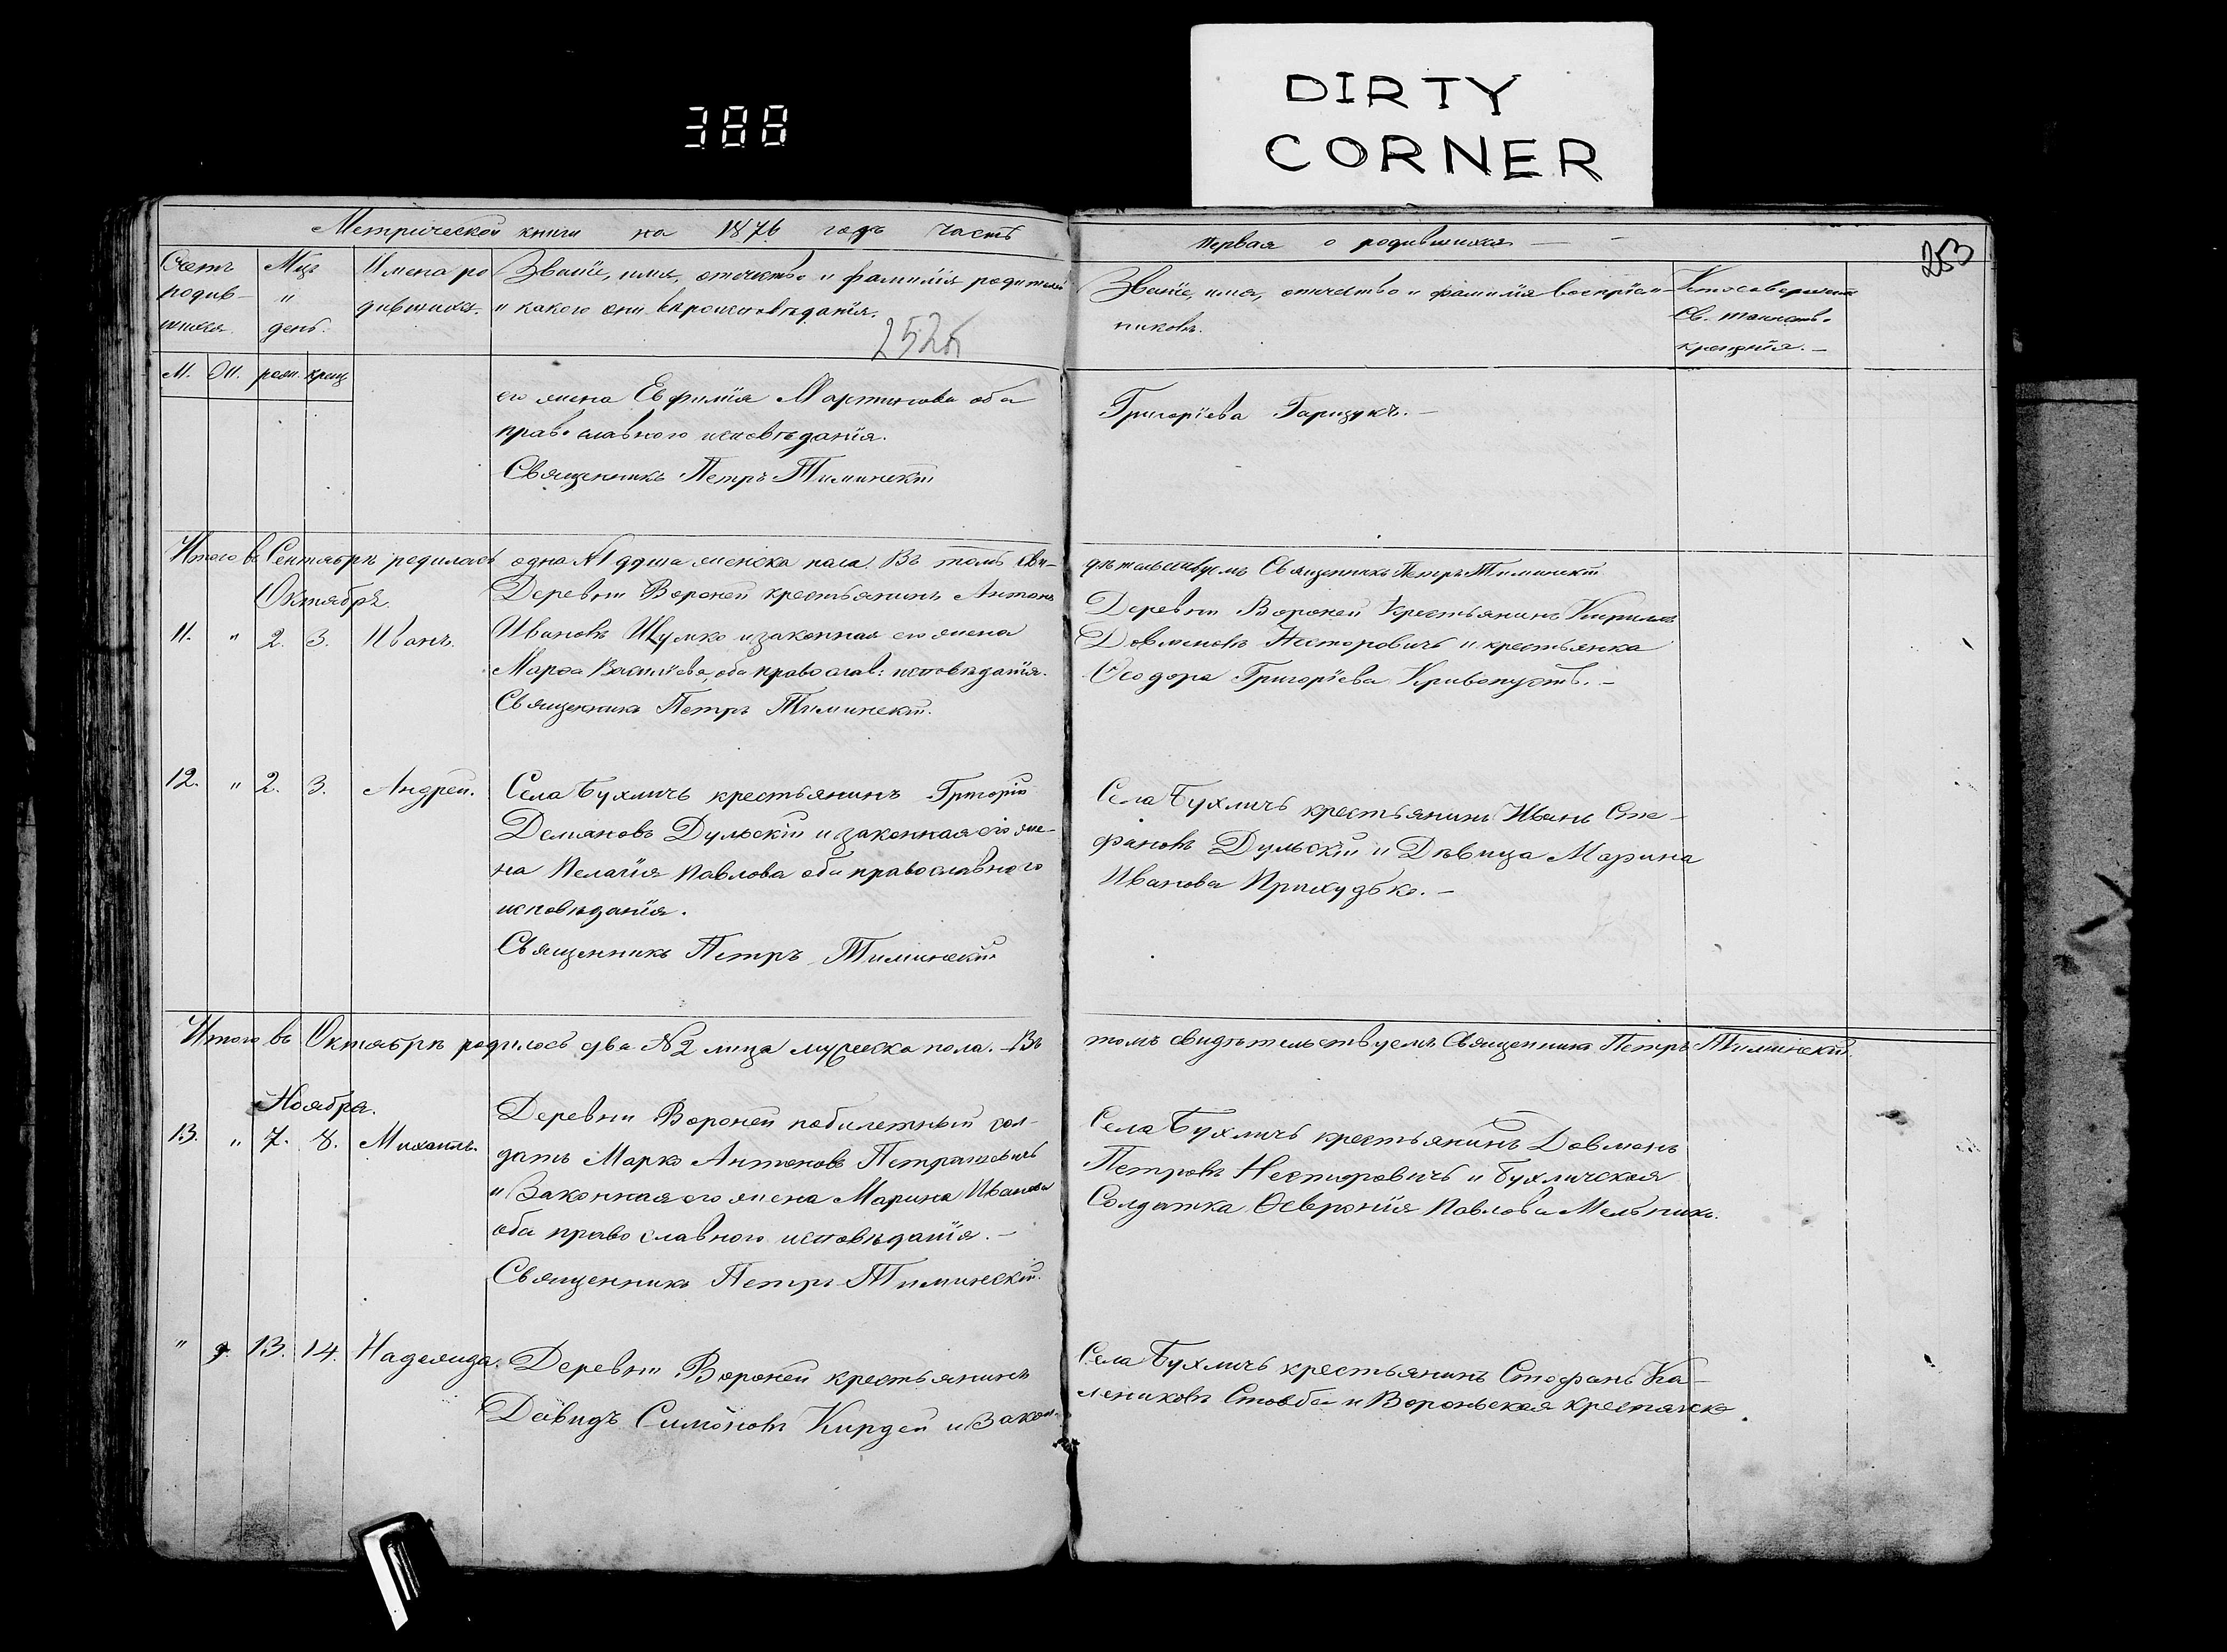 DIRTY
CORNER
388
Метрической книги на 1876 годъ часть
первая о родившихся
253
Счетъ
родив-
шихся.
Мцъ
"
день.
Имена ро
дившихся.
Званіе, имя, отечество и фамилія родителей
и какого они вѣроисповѣданія.
252
Званіе, имя, отчество и фамилія воспріем-
никовъ.
Кто совершилъ
Св. таинство
крещенія. —
М. Ж. рожд. крещ.
его жена Евфимія Мартинова оба
православного исповѣданія.
Священникъ Петръ Тиминскій
Григоріева Гарщукъ. —
Итого въ Сентябрѣ родилась одна №1 душа женска пола. Въ томъ сви-
дѣтельствуемъ Священникъ Петръ Тиминскій
Октябрь.
11. " 2. 3. Иванъ.
Деревни Вороней крестьянинъ Антонъ
Ивановъ Шумко и законная его жена
Марѳа Василіева, оба православ: исповѣданія.
Священникъ Петръ Тиминскій.
Деревни Вороней крестьянинъ Кириллъ
Довменовъ Несторовичъ и крестьянка
Ѳеодора Григоріева Кривопустъ. —
12. " 2. 3. Андрей.
Села Бухличь крестьянинъ Григорій
Демяновъ Дульскій и законная его же-
на Пелагія Павлова оба православного
исповѣданія.
Священникъ Петръ Тиминскій
Села Бухличь крестьянинъ Иванъ Сте-
фановъ Дульскій и Дѣвица Марина
Иванова Приходько. —
Итого въ Октябрѣ родилось два №2 лица мужеска пола. — Въ
томъ свидѣтельствуемъ Священникъ Петръ Тиминскій.
Ноября.
13. " 7. 8. Михаилъ.
Деревни Вороней побилетный сол-
датъ Марко Антоновъ Петрашевичъ
и Законная его жена Марина Иванова
оба православного исповѣданія. —
Священникъ Петръ Тиминскій.
Села Бухличь крестьянинъ Довменъ
Петровъ Несторовичъ и Бухличская
Солдатка Ѳевронія Павлова Мельникъ.
" 13. 14. Надежда.
Деревни Вороней крестьянинъ
Давидъ Симоновъ Кирдей и Закон-
Села Бухличь крестьянинъ Стефанъ Ка-
лениковъ Стовба и Вороньская крестянка